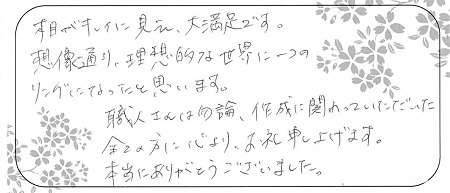 木目がキレイに見え、大満足です。
想像通り、理想的な世界に一つの
リングになったと思います。
職人さんは勿論、作成に関わっていただいた
全ての方に心より、お礼申し上げます。
本当にありがとうございました。